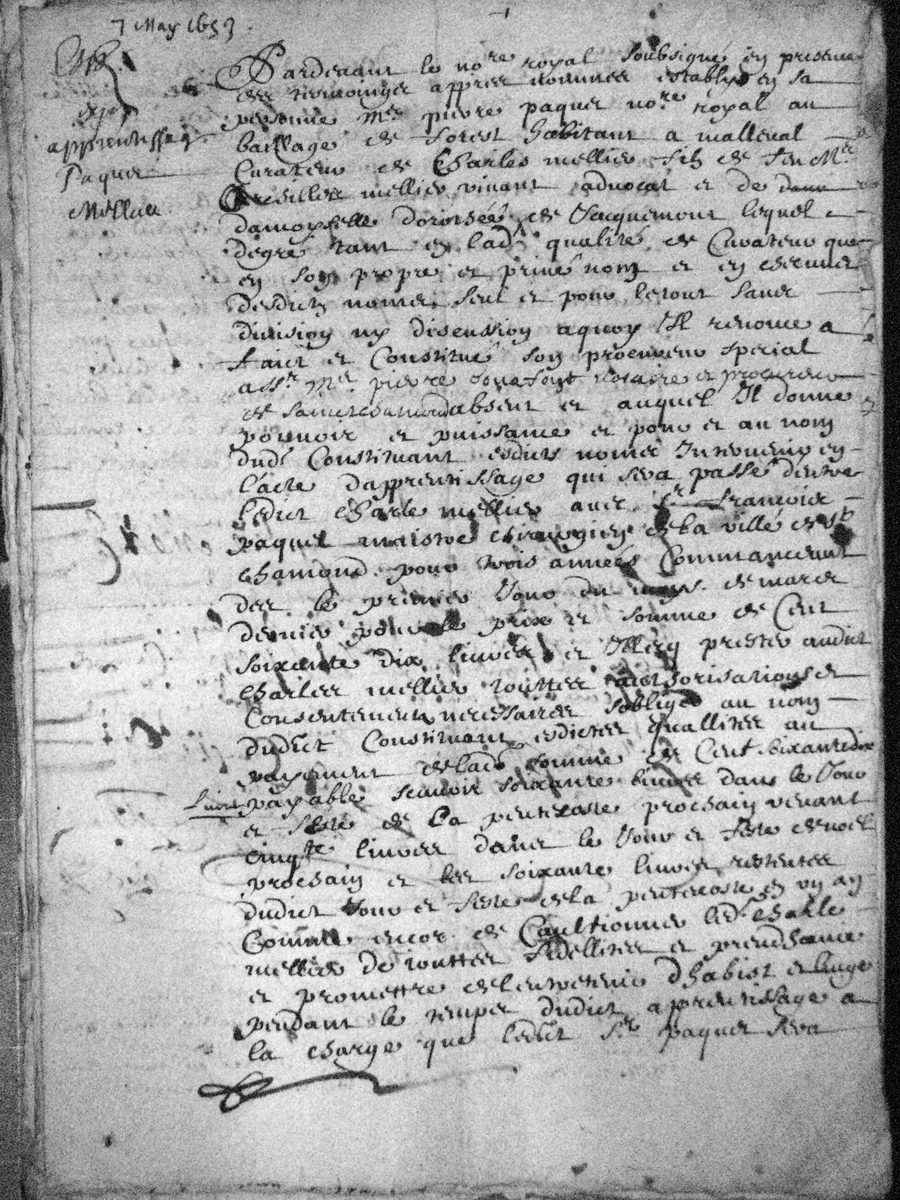 7 May 1653
apprentissage
Paquet
Mellier
Pardevant le nore royal soubsigné en presence
des tesmoings appres nommes estably en sa
personne Mre pierre paquet nore royal au
bailliage de forest habitant a malleval
Curateur de Charles mellier filz de feu Mr
mellier vivant advocat et de
damoyselle dorothée de Jacquemont lequel
degré tant en lad qualité de Curateur que
en son propre et privé nom et en chescung
desdictz nomes seul et pour letout sans
division ny discussion aquoy Il renonce a
faict et Constitué son procureur special
Mre pierre notaire et procureur
de sainct chamond absent et auquel Il donne
pouvoir et puissance et pour et au nom
dud Constituant esdicts nomes Intervenir en
lacte dapprentissage qui sera passé dentre
ledict Charle mellier avec Sr françois
paquet maistre chirurgien de la ville de st
chamond pour trois années Commancement
des le premier Jour du moys de mars
dernier pour le prix et somme de Cent
soixante dix livres et prester audict
Charles mellier touttes authorisations et
Consentement necessaires sobliger au nom
dudict Constituant esdictes quallites au
payement de lad somme de Cent soixante dix
livres payable scavoir soixante livres dans le Jour
et feste de la pentecoste prochain venant
cinqte livres dans le Jour et feste de noel
prochain et les soixante livres restantes
dudict Jour et feste de la pentecoste en un an
Comme encor de Caultionner led Charle
mellier de touttes fidellites et
et promettre de lentretenir dhabist et linge
pendant le temps dudict apprentissage a
la charge que ledict Sr paquet sera